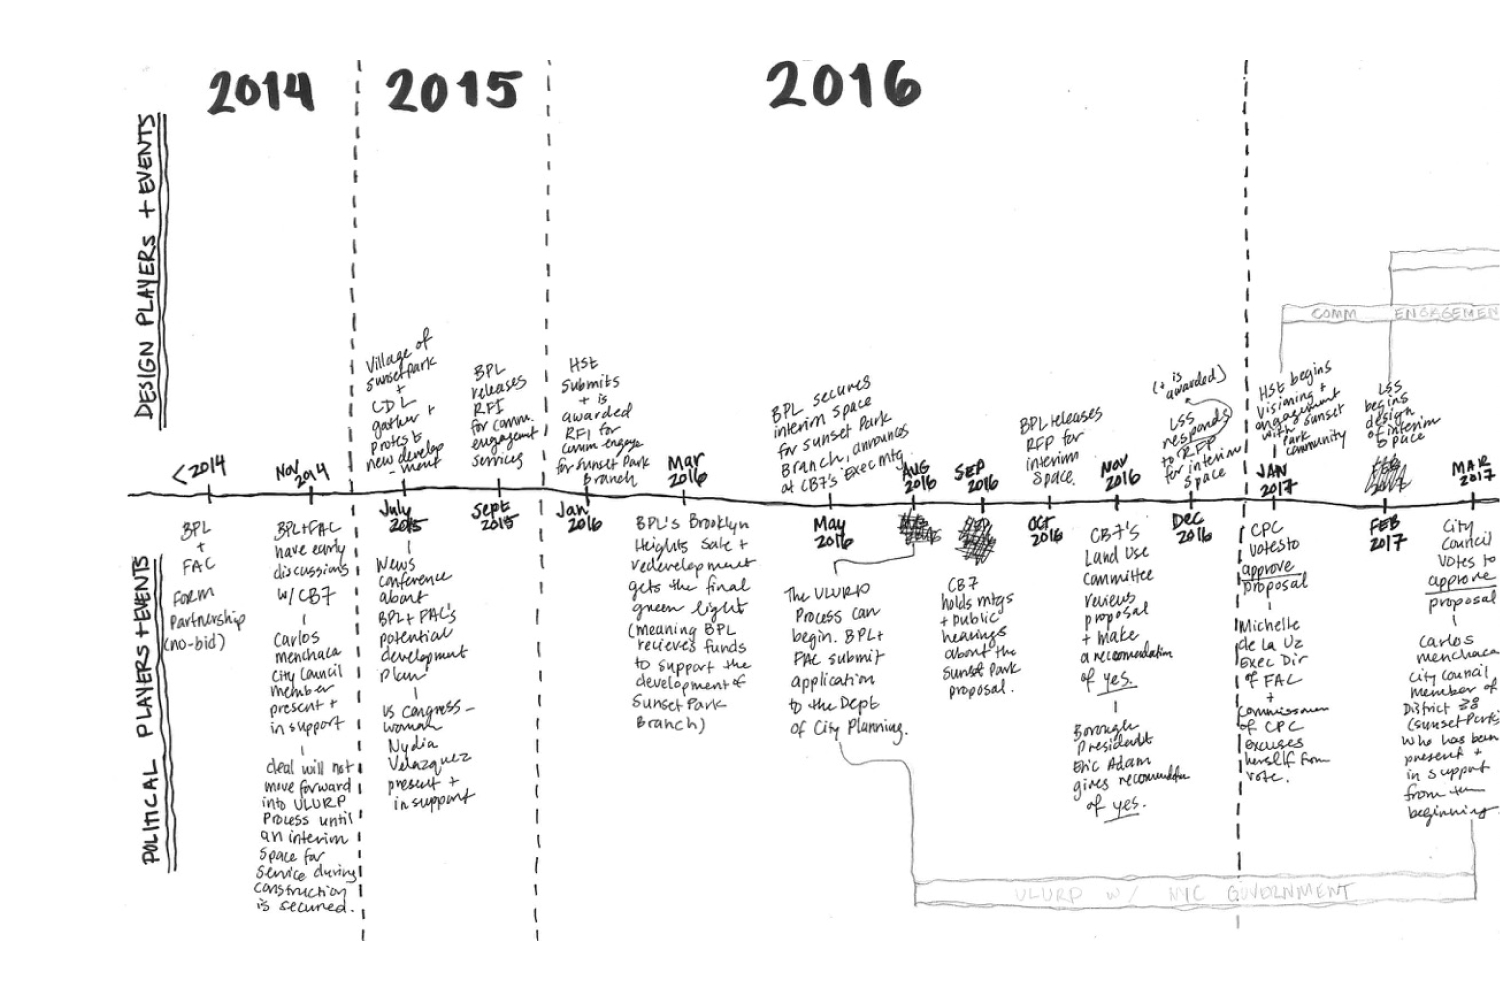 2014
2015
2016
DESIGN PLAYERS + EVENTS
Village of
sunset park
+
CDL
gather +
protest
new develop
-ment
BPL
releases
RFI
for comm.
engagement
services
HSt
submits
+ is
awarded
RFI for
comm. engage
for Sunset Park
Branch
BPL secures
interim space
for Sunset Park
Branch, announces
at CB7's Exec mtg.
BPL releases
RFP for
interim
space.
(+ is
awarded)
LSS
responds
to RFP
for interim
space
HSt begins
visioning +
engagement
with Sunset
Park
community
LSS
begins
design
of interim
space
COMM ENGAGEMEN
<2014
Nov
2014
July
2015
Sept
2015
Jan
2016
Mar
2016
May
2016
AUG
2016
SEP
2016
Oct
2016
Nov
2016
Dec
2016
JAN
2017
FEB
2017
MAR
2017
POLITICAL PLAYERS + EVENTS
BPL
+
FAC
Form
Partnership
(no-bid)
BPL+FAC
have early
discussions
w/ CB7
Carlos
menchaca
city Council
member
present +
in support
deal will not
move forward
into ULURP
Process until
an interim
space for
service during
construction
is secured.
News
conference
about
BPL + FAC's
potential
development
plan
US Congress-
woman
Nydia
Velazquez
present +
in support
BPL's Brooklyn
Heights Sale +
redevelopment
gets the final
green light
(meaning BPL
recieves funds
to support the
development of
Sunset Park
Branch)
The ULURP
Process can
begin. BPL +
FAC submit
application
to the Dept
of City Planning.
CB7
holds mtgs
+ public
hearings
about the
Sunset Park
proposal.
CB7's
Land Use
committee
reviews
proposal
+ make
a recomendation
of yes.
Borough
President
Eric Adam
gives recomendation
of yes.
CPC
votes to
approve
proposal
Michelle
de la Uz
Exec Dir
of FAC
+
commissioner
of CPC
excuses
herself from
vote.
City
Council
votes to
approve
proposal
Carlos
menchaca
city council
member of
District 38
(sunset Park)
who has been
present +
in support
from the
beginning
ULURP W/ NYC GOVERNMENT